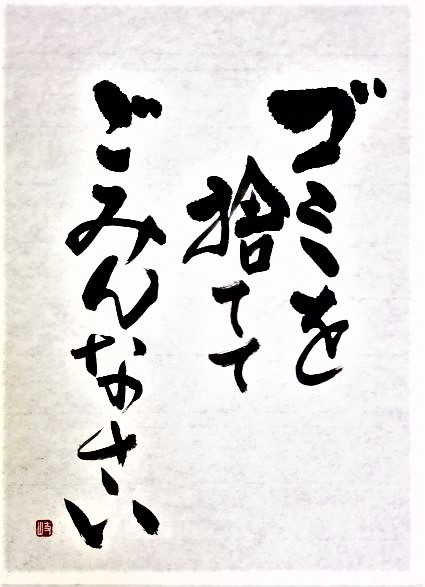 ゴミを
捨てて
ごみんなさい